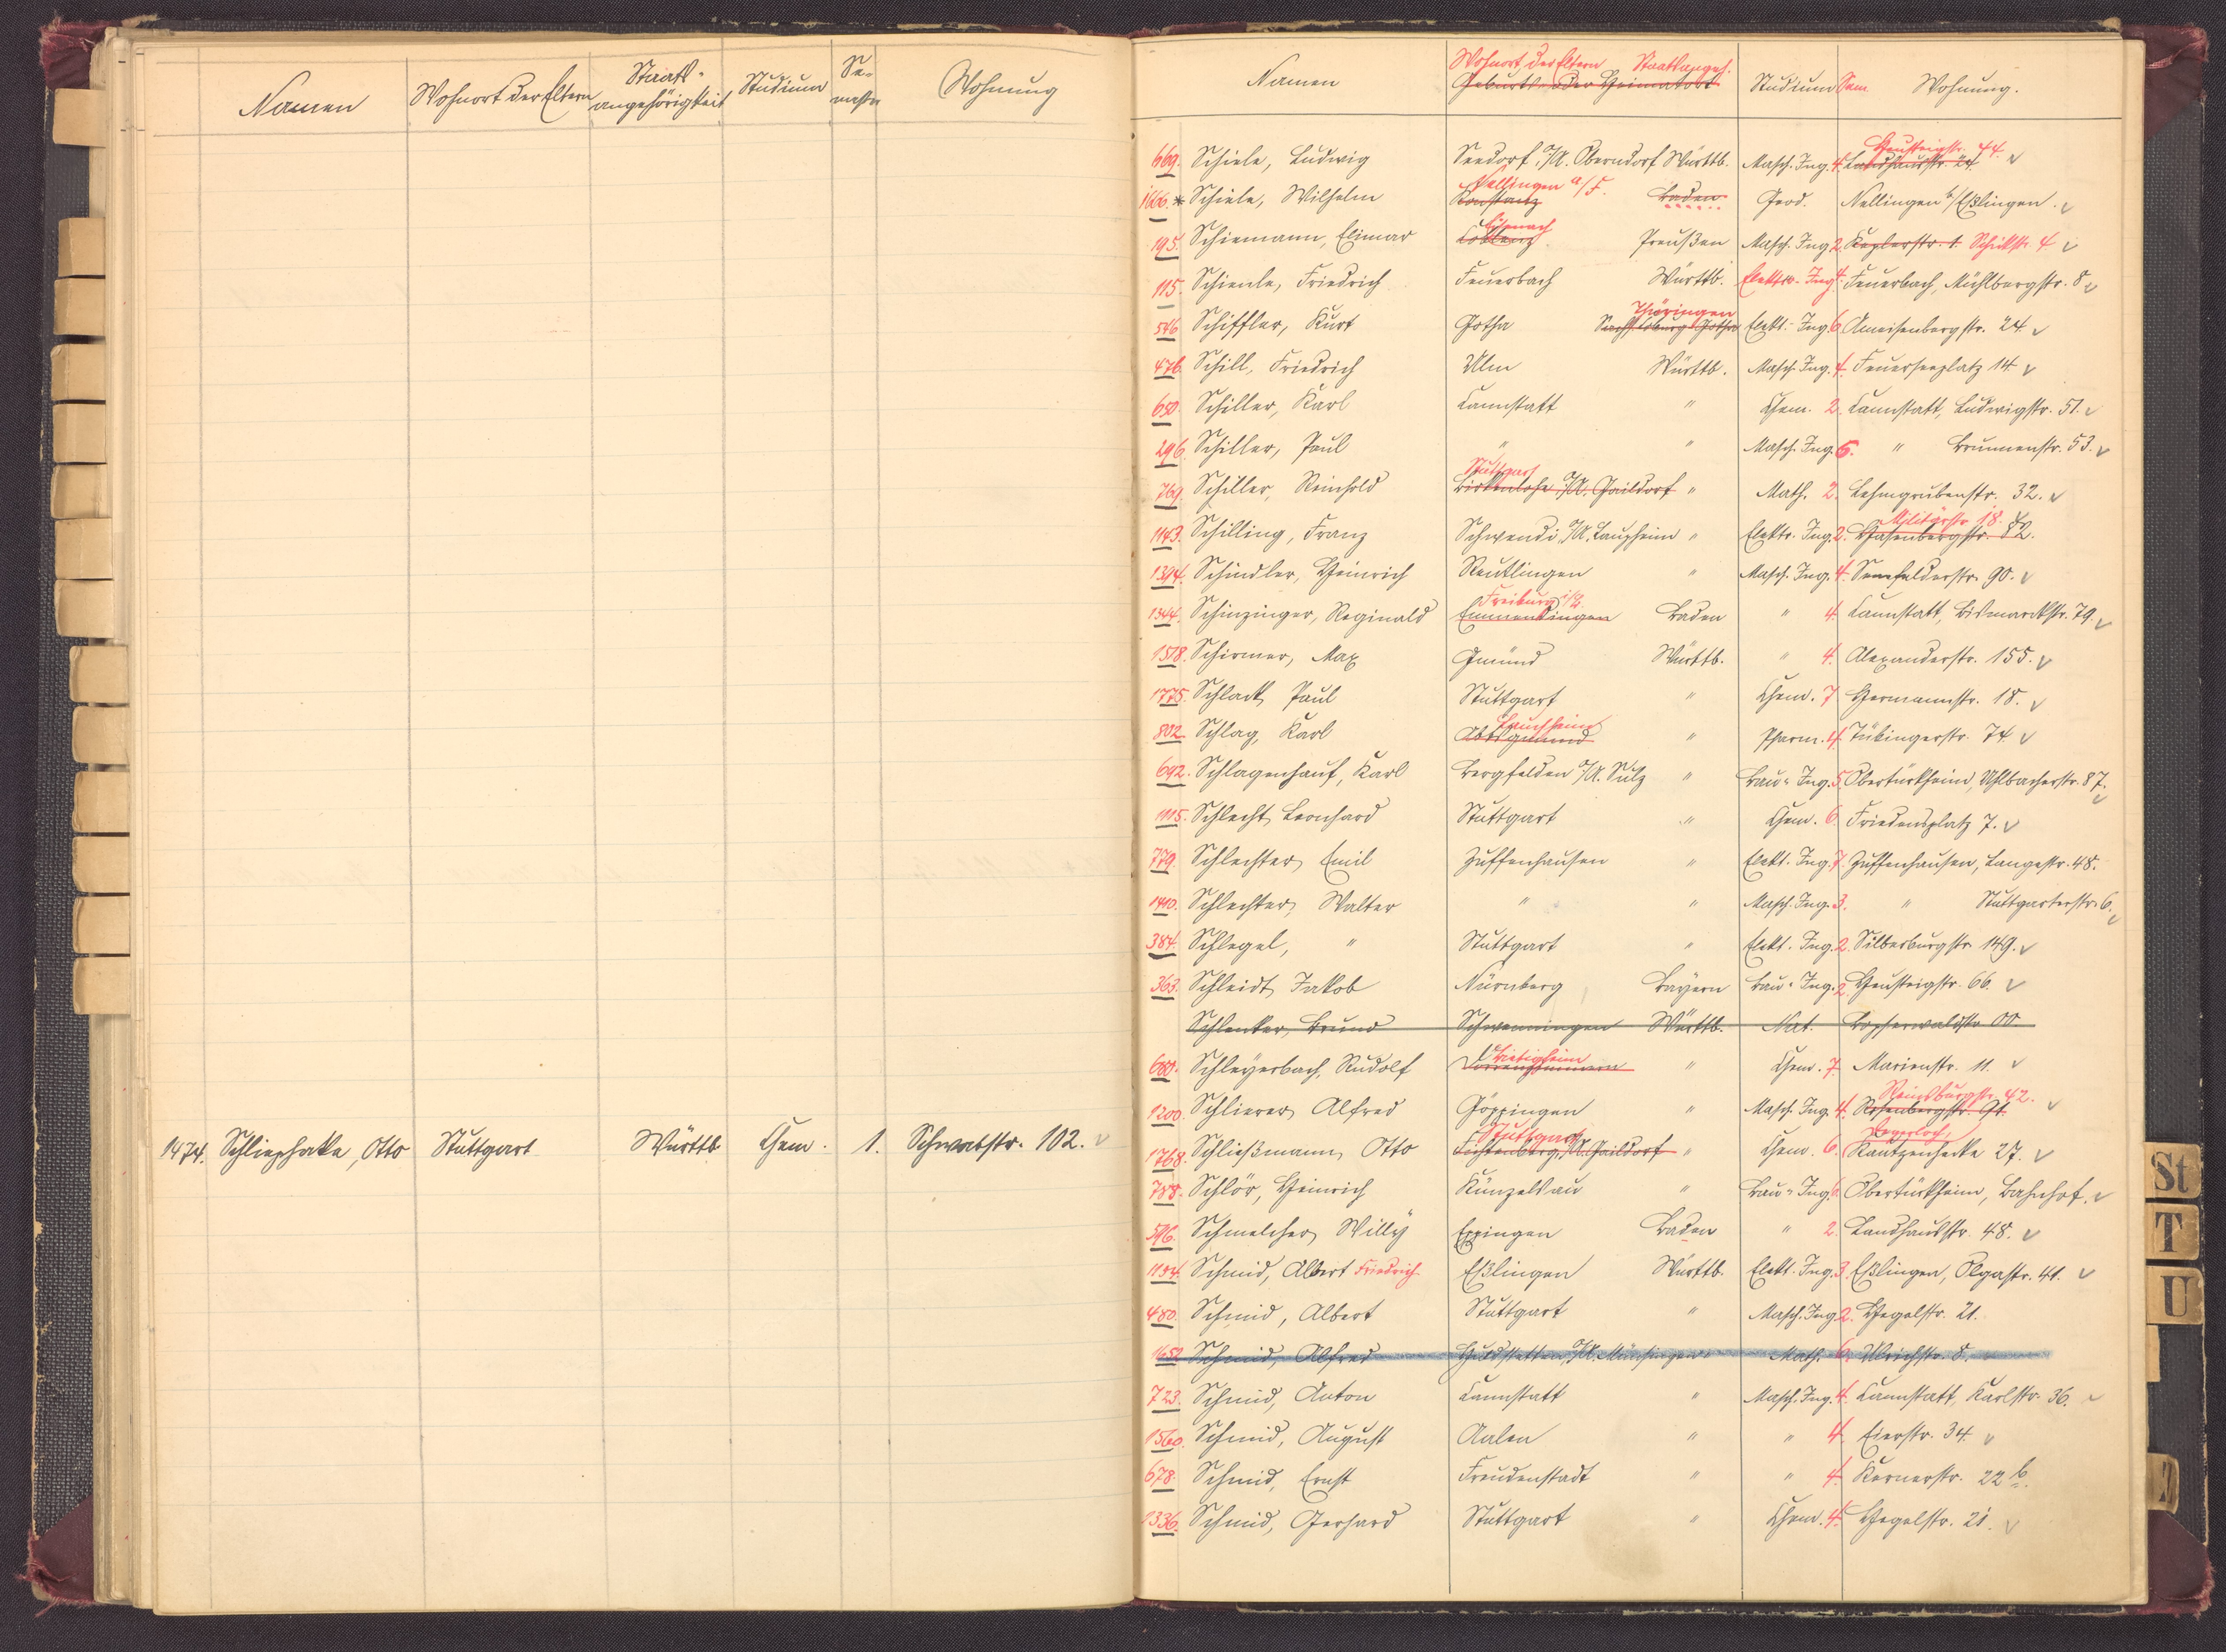 Namen Wohnort der Eltern Staats-angehörigkeit Studium Se-mester Wohnung
1474. Schliephake, Otto Stuttgart Württb Chem. 1. Schwabstr. 102.
Namen Wohnort der Eltern Staatsangeh. Geburts- oder Heimatort Studium Sem Wohnung.
669. Schiele, Ludwig Seedorf, O/A. Oberndorf Württb. Masch. Ing. 4. Landhausstr. 24. Heusteigstr. 44.
1666. * Schiele, Wilhelm Konstanz Nellingen a/F. Baden Geod. Nellingen b/Eßlingen.
195. Schiemann, Elimar Coblenz Eisenach Preußen Masch. Ing 2. Keplerstr. 1. Schickstr. 4
115. Schienle, Friedrich Feuerbach Württb. Elektr. Ing 4. Feuerbach, Mühlbergstr. 8
546 Schiffler, Kurt Gotha Sachs. Coburg Gotha Thüringen Elekt. Ing. 6 Ameisenbergstr. 24.
476. Schill, Friedrich Ulm Württb. Masch. Ing. 4. Feuerseeplatz 14
650. Schiller, Karl Cannstatt " Chem. 2. Cannstatt, Ludwigstr. 51.
296. Schiller, Paul " " Masch. Ing. 6. " Brunnenstr. 53.
769. Schiller, Reinhold Birkenlohe O/A. Gaildorf Stuttgart " Math. 2. Lehmgrubenstr. 32.
1143. Schilling, Franz Schwendi, O/A. Laupheim " Elektr. Ing. 2. Hasenbergstr. 82. Militärstr 18.
1394. Schindler, Heinrich Reutlingen " Masch. Ing. 4. Senefelderstr. 90.
1344. Schinzinger, Reginald Emmendingen Freiburg i/B Baden " 4. Cannstatt, Bismarckstr. 79.
1518. Schirmer, Max Gmünd Württb. " 4. Alexanderstr. 155.
1775. Schlack, Paul Stuttgart " Chem. 7 Hermannstr. 18.
802 Schlag, Karl Abtsgmünd Lauchheim " Pharm. 4. Tübingerstr. 74
692. Schlagenhauf, Karl Bergfelden O/A. Sulz " Bau-Ing. 5 Obertürkheim, Uhlbacherstr. 87.
1115. Schlecht, Leonhard Stuttgart " Chem. 6. Friedensplatz 7.
779. Schlechter, Emil Zuffenhausen " Elekt. Ing. 7. Zuffenhausen, Langestr. 48.
1410. Schlechter, Walter " " Masch. Ing. 3. " Stuttgarterstr. 6.
384. Schlegel, " Stuttgart " Elekt. Ing. 2. Silberburgstr. 149.
363. Schleidt, Jakob Nürnberg Bayern Bau-Ing. 2 Heusteigstr. 66.
Schlenker, Bruno Schwenningen Württb. Nat. Bopserwaldstr
680. Schleyerbach, Rudolf Bietigheim " Chem. 7. Marienstr. 11.
1200. Schlierer, Alfred Göppingen " Masch. Ing. 4. Rosenbergstr. 91. Reinsburgstr. 42.
1768. Schließmann, Otto Fichtenberg, O/A. Gaildorf Stuttgart " Chem. 6. Kautzenhecke 27. Degerloch
788. Schlör, Heinrich Künzelsau " Bau-Ing. 6. Obertürkheim, Bahnhof.
596. Schmelcher, Willy Eppingen Baden " 2. Landhausstr. 48.
1154. Schmid, Albert Friedrich Eßlingen Württb. Elekt. Ing. 3. Eßlingen, Olgastr. 41.
480. Schmid, Albert Stuttgart " Masch. Ing 2. Hegelstr. 21.
1652 Schmid, Alfred O/A. Münsingen " Math. 6. Ulrichstr. 8.
723. Schmid, Anton Cannstatt " Masch. Ing. 4. Cannstatt, Karlstr. 36.
1560. Schmid, August Aalen " " 4. Eierstr. 34.
678. Schmid, Ernst Freudenstadt " " 4. Kernerstr. 22 b.
1336. Schmid, Gerhard Stuttgart " Chem. 4. Hegelstr. 21.
St
T
U